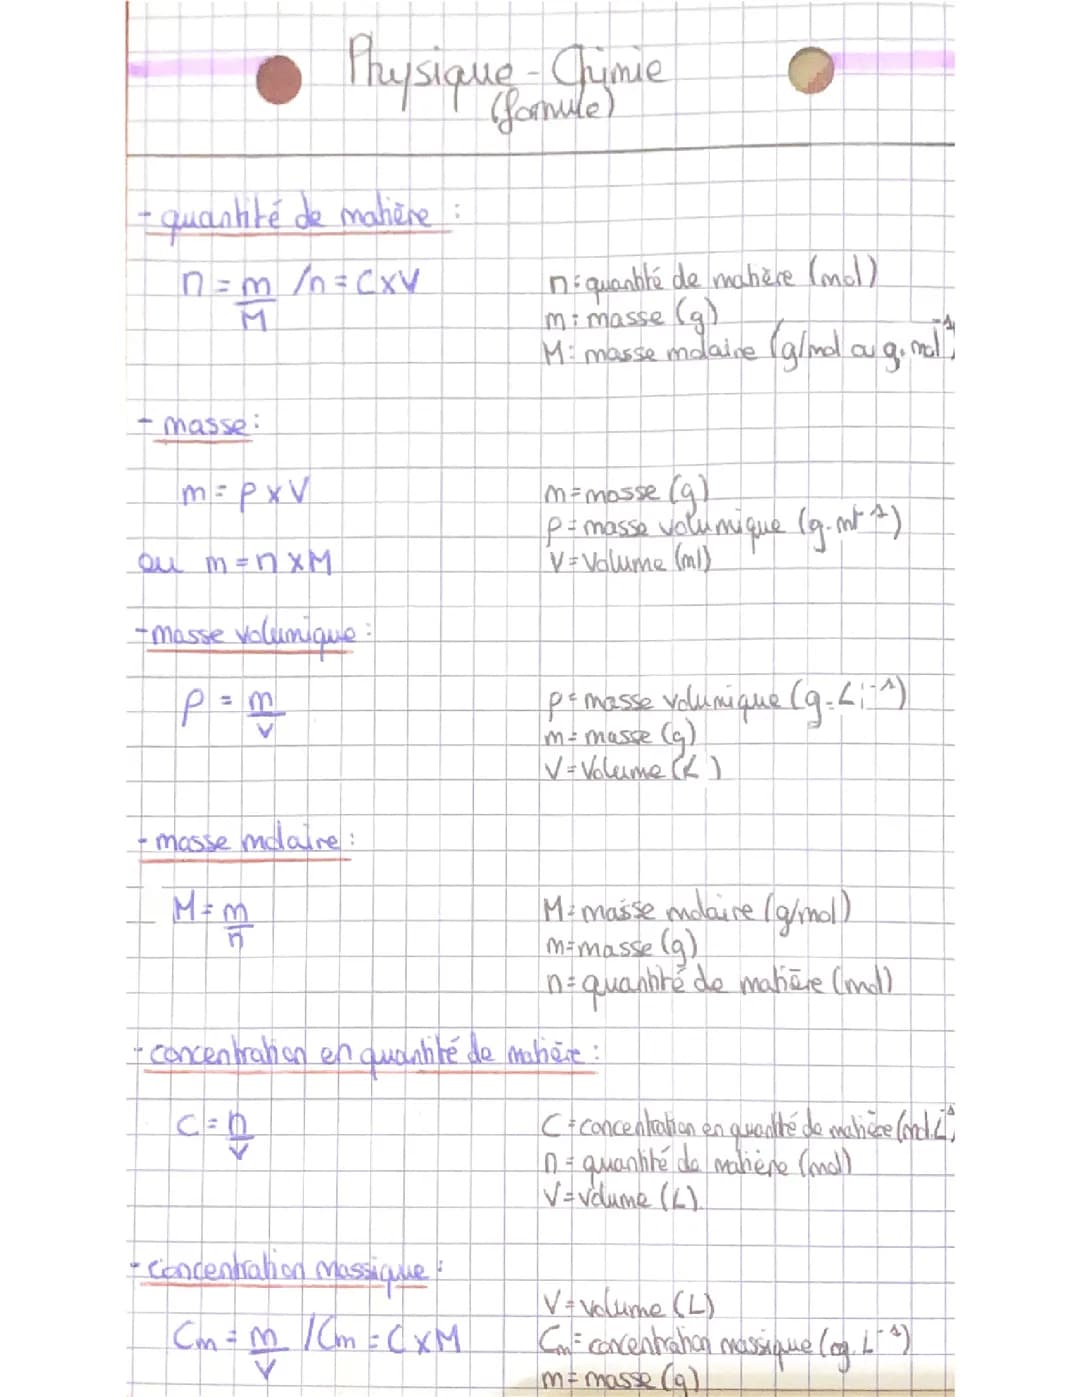 Physique - Chimie
(formule)
- quantité de matière :
n = m/M / n = C x V
n : quantité de matière (mol)
m : masse (g)
M : masse molaire (g/mol ou g.mol⁻¹)
- masse :
m = ρ x V
ou m = n x M
m = masse (g)
ρ = masse volumique (g.ml⁻¹)
V = Volume (ml)
- masse volumique :
ρ = m/V
ρ = masse volumique (g.L⁻¹)
m = masse (g)
V = Volume (L)
- masse molaire :
M = m/n
M = masse molaire (g/mol)
m = masse (g)
n = quantité de matière (mol)
- concentration en quantité de matière :
C = n/V
C = concentration en quantité de matière (mol.L⁻¹)
n = quantité de matière (mol)
V = volume (L).
- concentration massique :
Cm = m/V / Cm = C x M
V = volume (L)
Cm = concentration massique (g.L⁻¹)
m = masse (g)